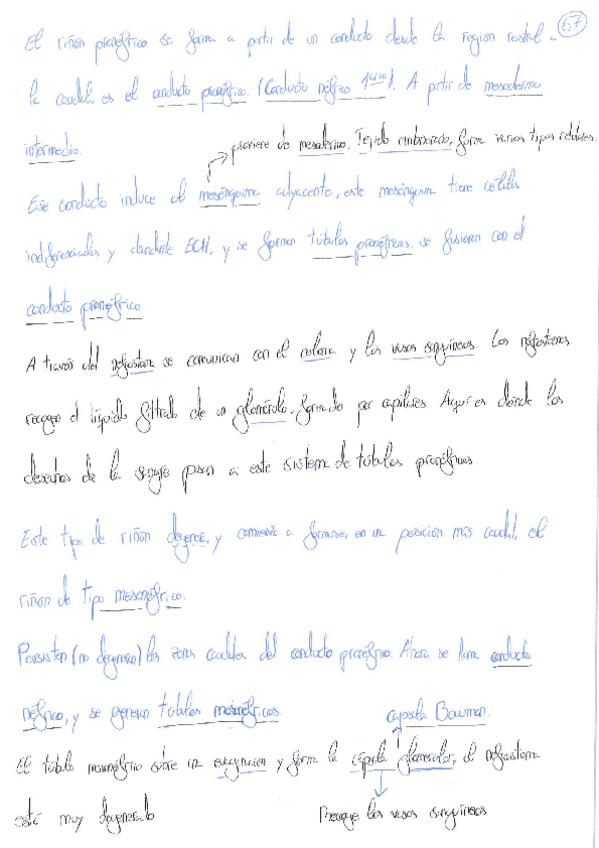 57
El riñón pronéfrico se forma a partir de un conducto desde la región rostral a
la caudal, es el conducto pronéfrico. (Conducto néfrico 1ario). A partir de mesodermo
intermedio.
proviene de mesodermo. Tejido embrionario, forma varios tipos celulares.
Ese conducto induce al mesénquima adyacente, este mesénquima tiene células
indiferenciadas y abundante ECM, y se forman túbulos pronéfricos, se fusionan con el
conducto pronéfrico
A través del nefrostoma se comunican con el celoma y los vasos sanguíneos. Los nefrostomas
recogen el líquido filtrado de un glomérulo, formado por capilares. Aquí es donde los
desechos de la sangre pasan a este sistema de túbulos pronéfricos.
Este tipo de riñón degenera, y comienza a formarse, en una posición más caudal, el
riñón de tipo mesonéfrico.
Persisten (no degeneran) las zonas caudales del conducto pronéfrico. Ahora se llama conducto
néfrico, y se generan túbulos mesonéfricos.
cápsula Bowman.
El túbulo mesonéfrico sufre una evaginación y forma la cápsula glomerular, el nefrostoma
está muy degenerado
Recoge los vasos sanguíneos